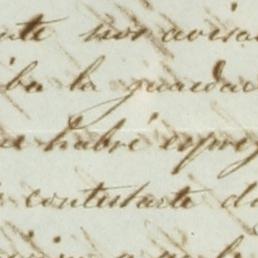 nte nos avisa
iba la guardar
ue habré espre
contestarte di